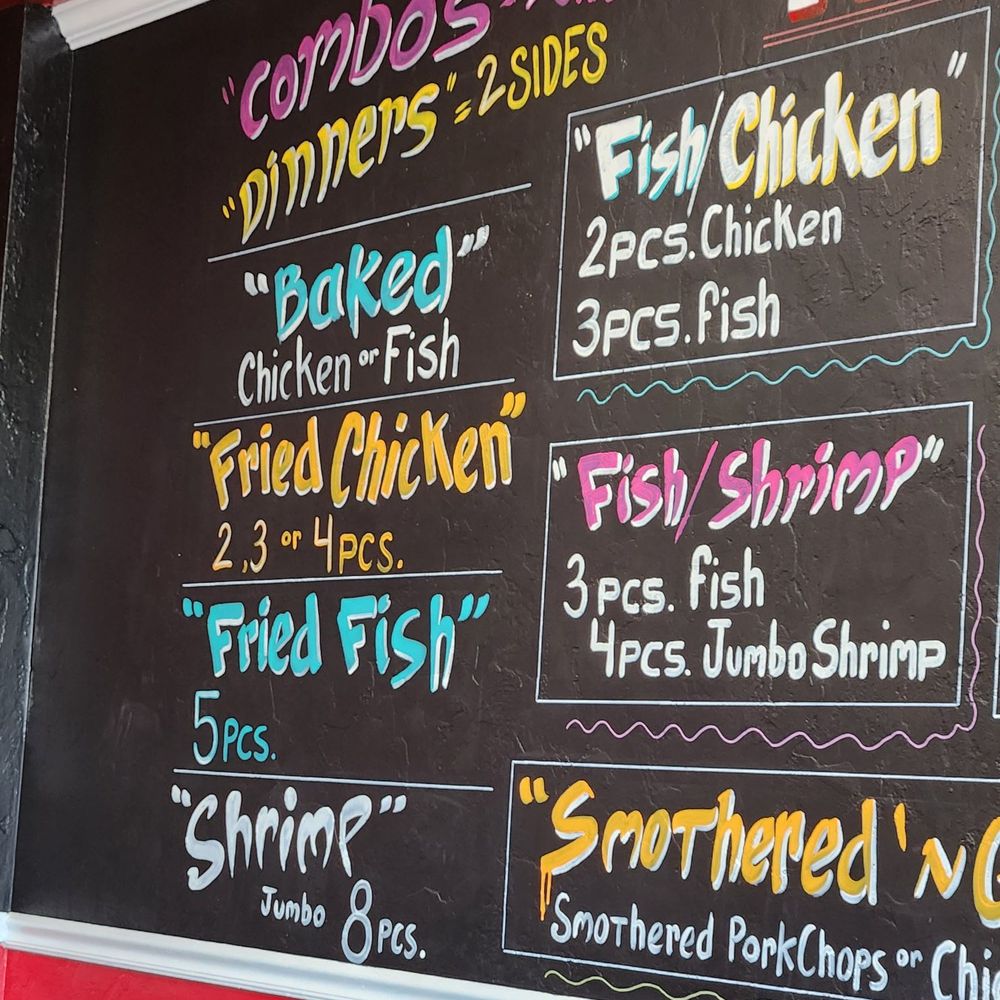 "Combos"
"Dinners" = 2 SIDES
"Baked"
Chicken or Fish
"Fried Chicken"
2,3 or 4 PCS.
"Fried Fish"
5 PCS.
"Shrimp"
Jumbo 8 PCS.
"Fish/Chicken"
2 PCS. Chicken
3 PCS. fish
"Fish/Shrimp"
3 PCS. fish
4 PCS. Jumbo Shrimp
"Smothered 'N
Smothered PorkChops or